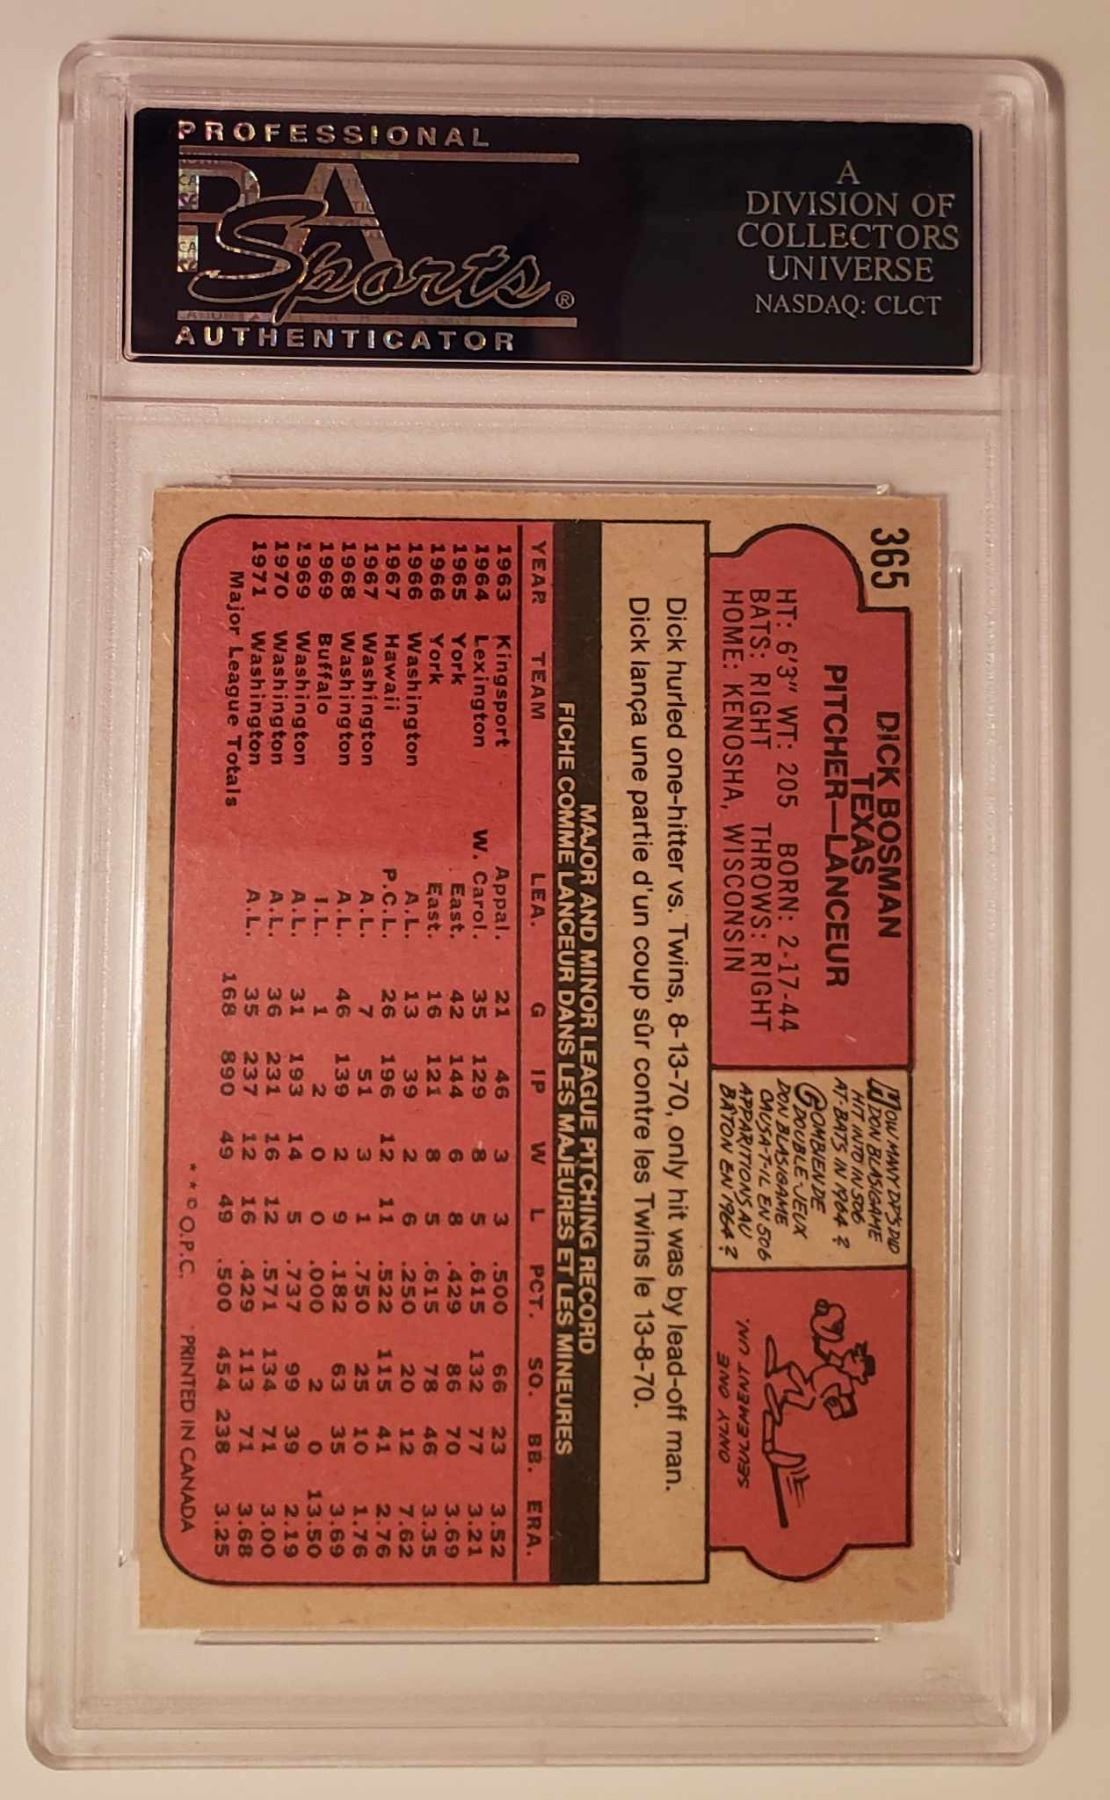 PROFESSIONAL
PSA
Sports®
AUTHENTICATOR
A
DIVISION OF
COLLECTORS
UNIVERSE
NASDAQ: CLCT
365
DICK BOSMAN
TEXAS
PITCHER—LANCEUR
HT: 6'3" WT: 205 BORN: 2-17-44
BATS: RIGHT THROWS: RIGHT
HOME: KENOSHA, WISCONSIN
HOW MANY DP'S DID
DON BLASIGAME
HIT INTO IN 506
AT-BATS IN 1964?
COMBIEN DE
DOUBLE-JEUX
DON BLASIGAME
CAUSA-T-IL EN 506
APPARITIONS AU
BÂTON EN 1964?
ONLY ONE
SEULEMENT UN.
Dick hurled one-hitter vs. Twins, 8-13-70, only hit was by lead-off man.
Dick lança une partie d'un coup sûr contre les Twins le 13-8-70.
MAJOR AND MINOR LEAGUE PITCHING RECORD
FICHE COMME LANCEUR DANS LES MAJEURES ET LES MINEURES
YEAR TEAM LEA. G IP W L PCT. SO. BB. ERA.
1963 Kingsport Appal. 21 46 3 3 .500 66 23 3.52
1964 Lexington W. Carol. 35 129 8 5 .615 132 77 3.21
1965 York East. 42 144 6 8 .429 86 70 3.69
1966 York East. 16 121 8 5 .615 78 46 3.35
1966 Washington A.L. 13 39 2 6 .250 20 12 7.62
1967 Hawaii P.C.L. 26 196 12 11 .522 115 41 2.76
1967 Washington A.L. 7 51 3 1 .750 25 10 1.76
1968 Washington A.L. 46 139 2 9 .182 63 35 3.69
1969 Buffalo I.L. 1 2 0 0 .000 2 0 13.50
1969 Washington A.L. 31 193 14 5 .737 99 39 2.19
1970 Washington A.L. 36 231 16 12 .571 134 71 3.00
1971 Washington A.L. 35 237 12 16 .429 113 71 3.68
Major League Totals 168 890 49 49 .500 454 238 3.25
**© O.P.C. PRINTED IN CANADA